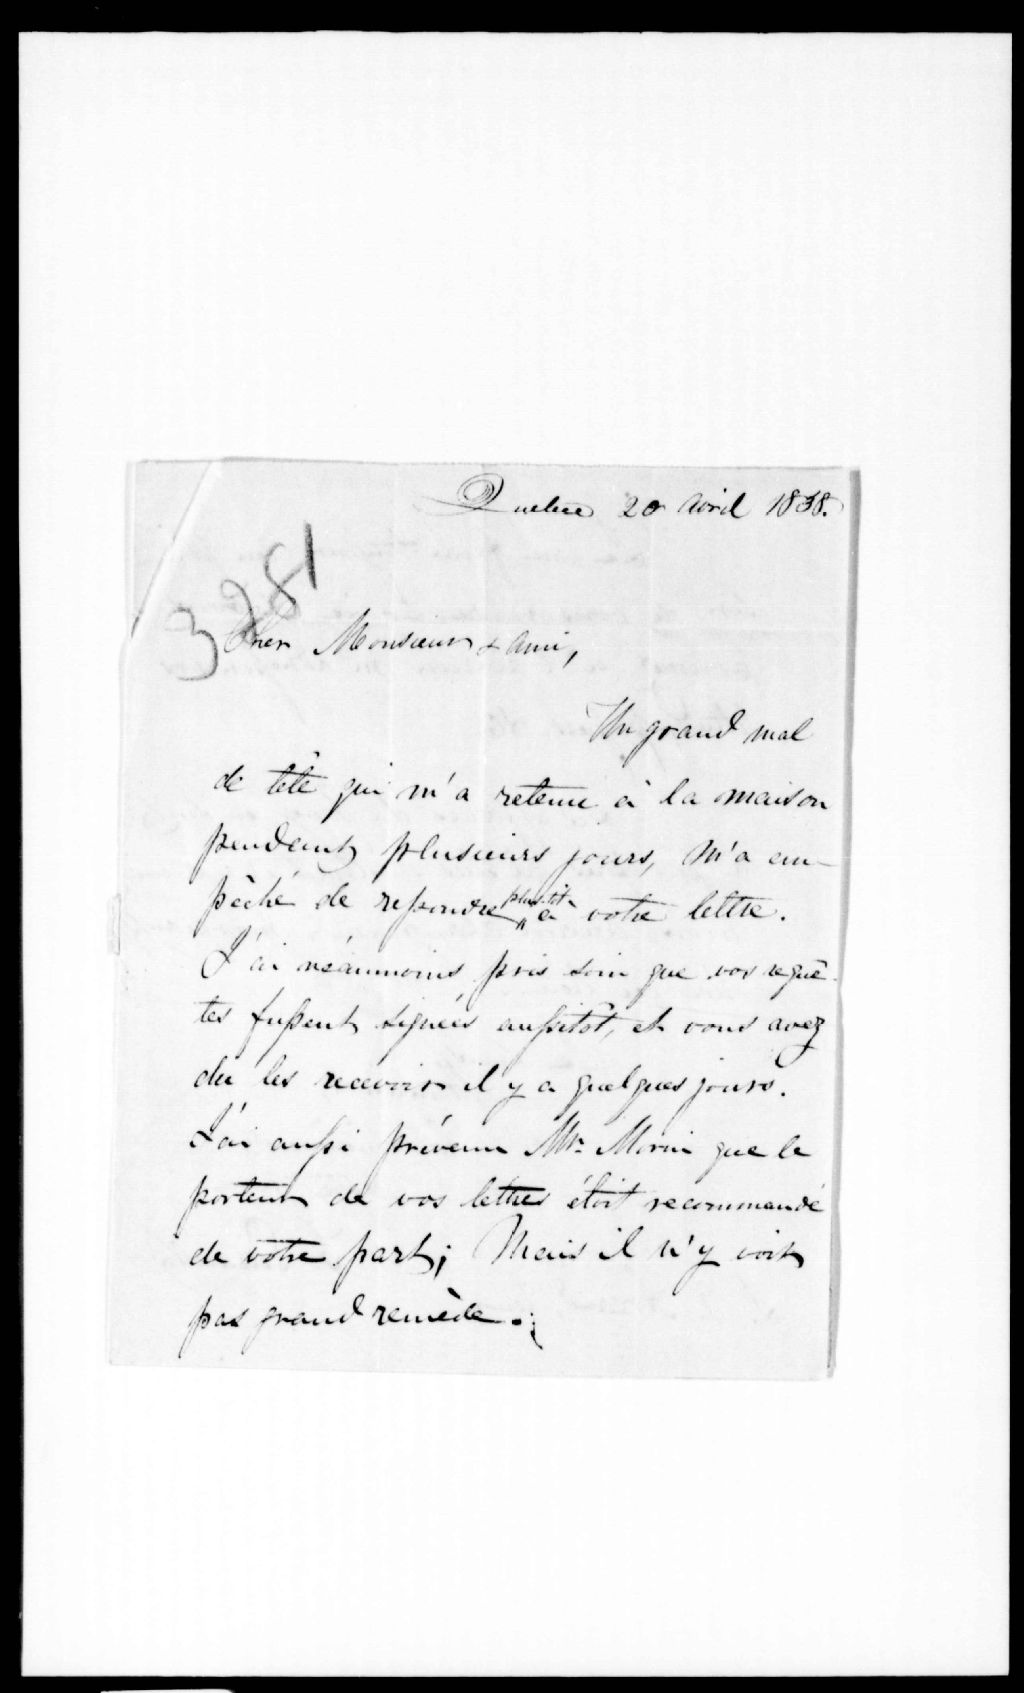 Quebec 20 Avril 1838.
3281
Cher Monsieur & ami,
Un grand mal
de tête qui m'a retenu à la maison
pendant plusieurs jours, m'a em-
pêché de repondre plutôt à votre lettre.
J'ai néanmoins pris soin que vos requê-
tes fussent signées aussitot, et vous avez
du les recevoir il y a quelques jours.
J'ai aussi prévenu Mr. Morin que le
porteur de vos lettres étoit recommandé
de votre part; Mais il n'y voit
pas grand remède.